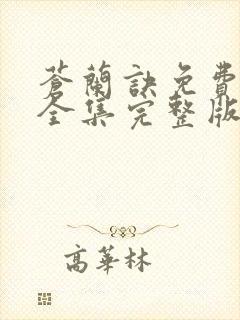 蒼蘭訣免費
全集完整版
高華林